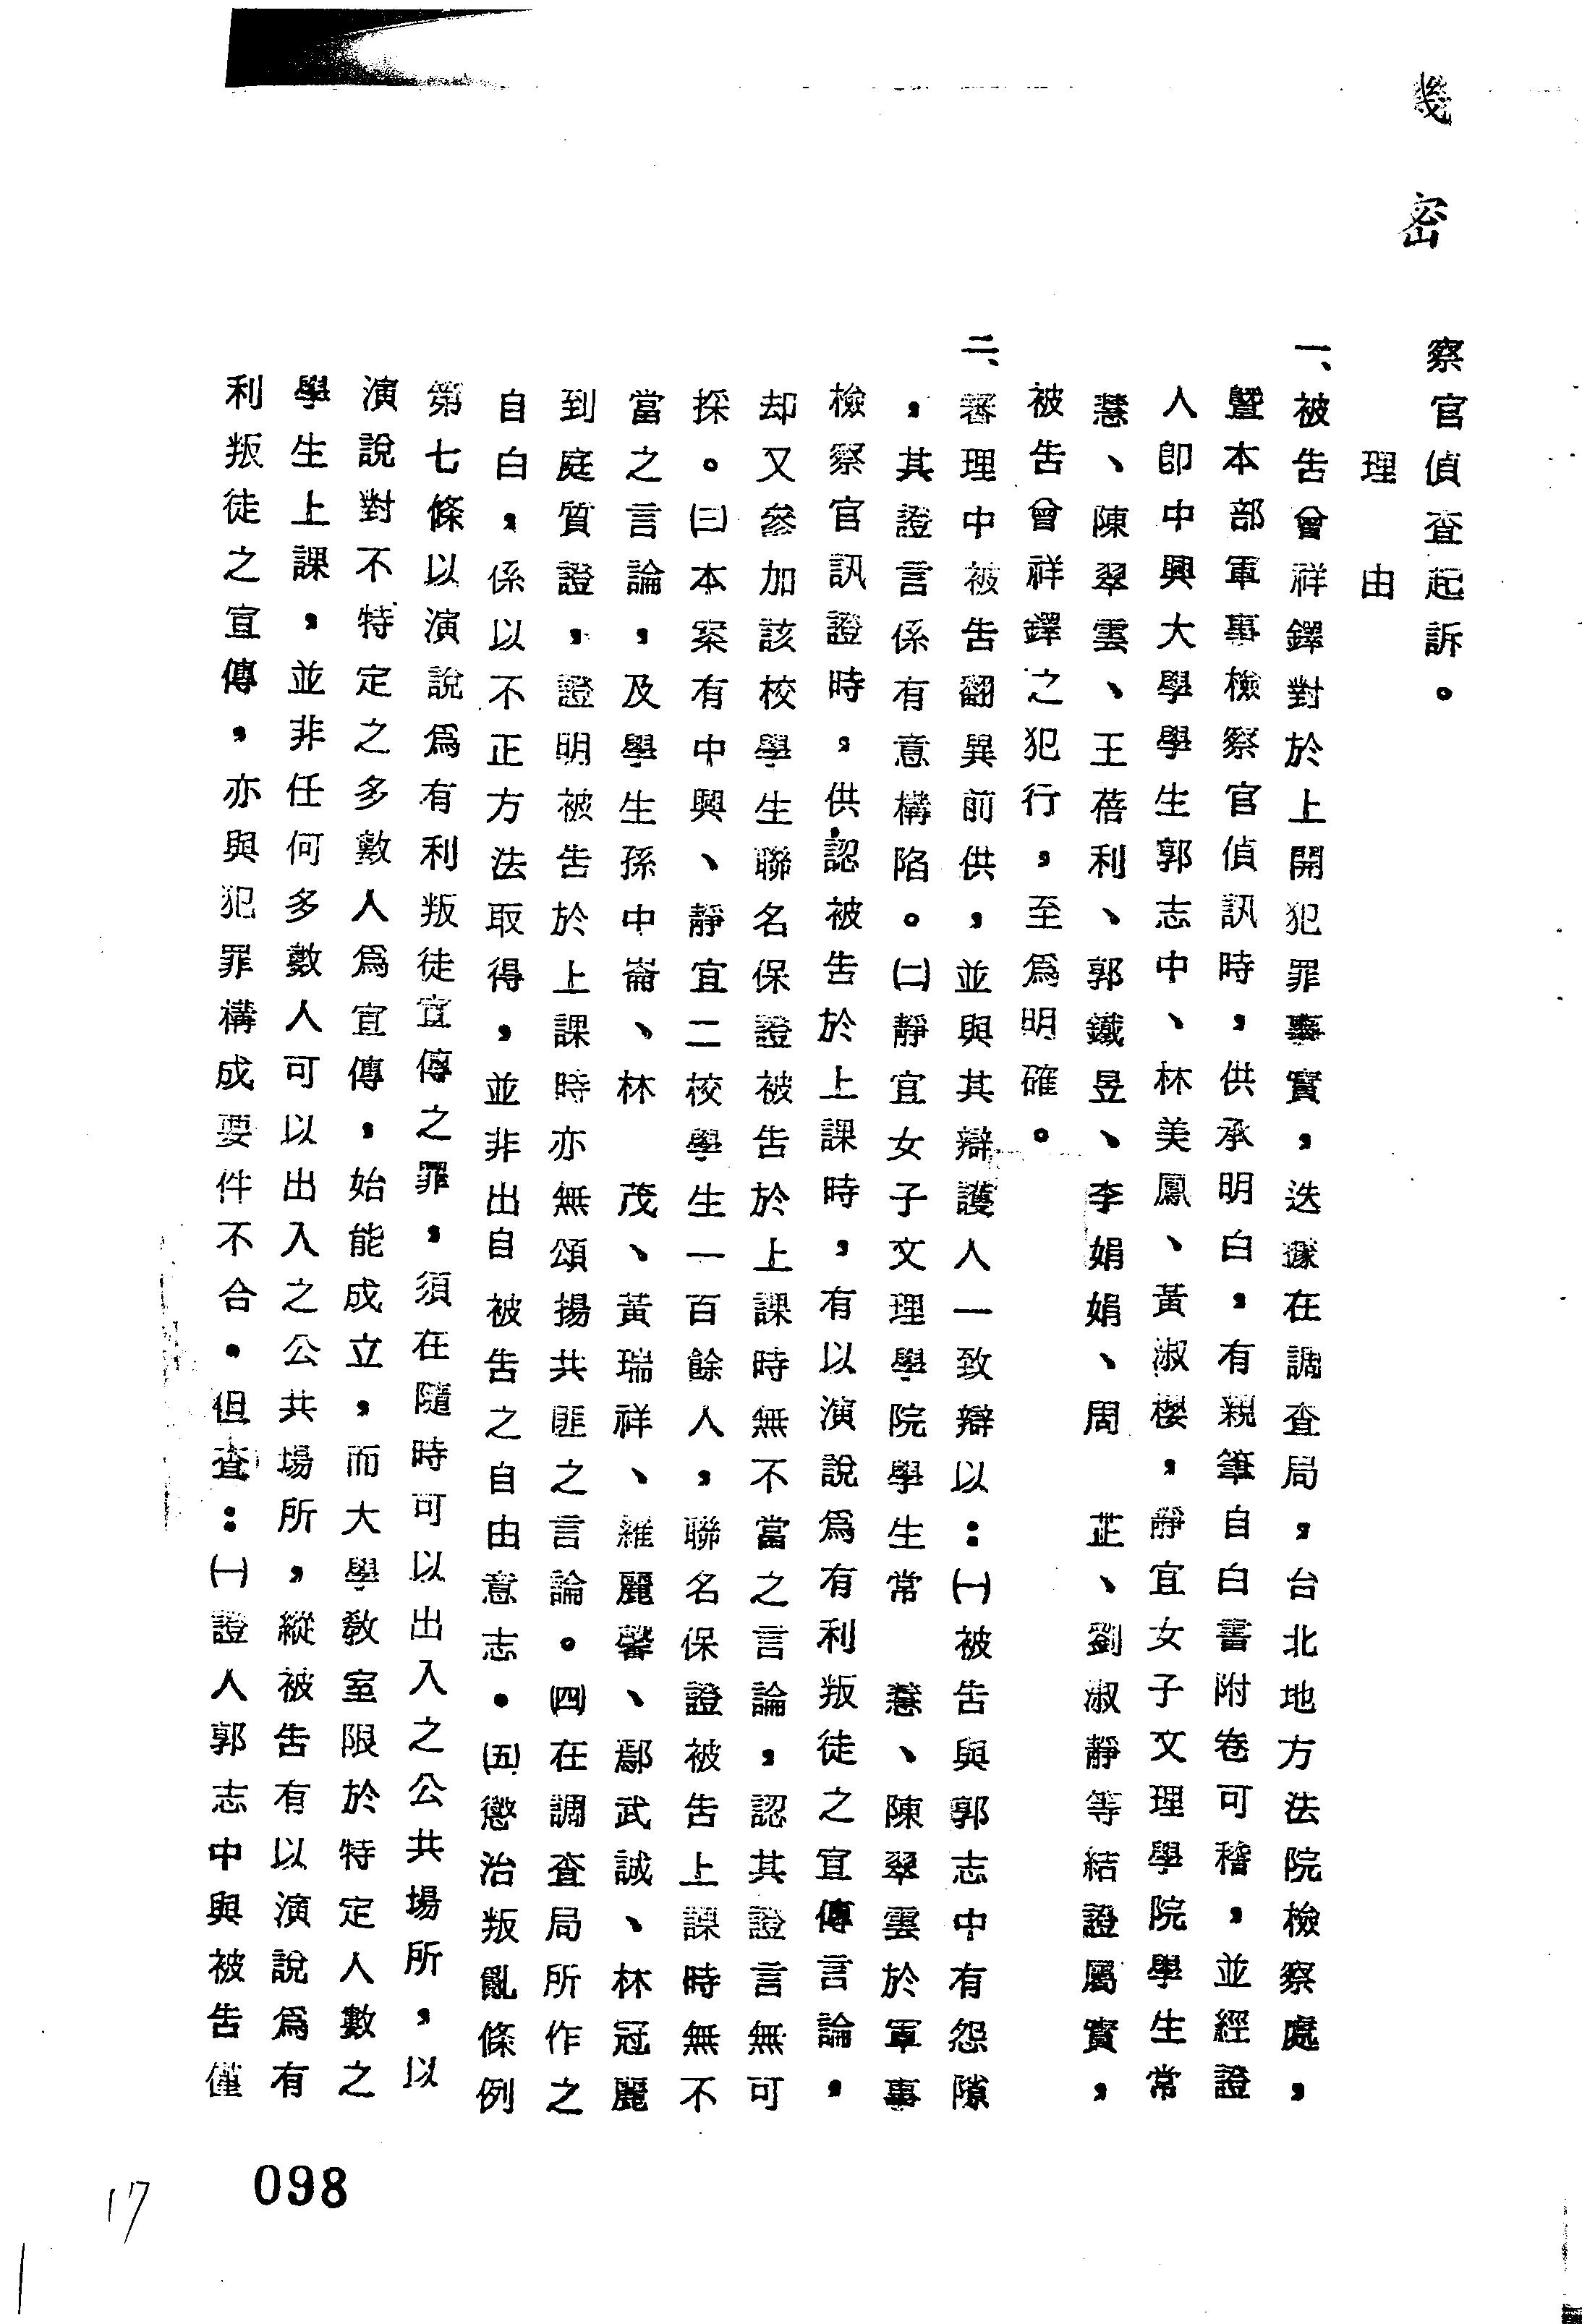 機密
察官偵查起訴。
理由
一、被告曾祥鐸對於上開犯罪事實，迭據在調查局，台北地方法院檢察處，
暨本部軍事檢察官偵訊時，供承明白，有親筆自白書附卷可稽，並經證
人即中興大學學生郭志中、林美鳳、黃淑櫻，靜宜女子文理學院學生常
慧、陳翠雲、王蓓利、郭鐵昱、李娟娟、周　芷、劉淑靜等結證屬實，
被告曾祥鐸之犯行，至為明確。
二、審理中被告翻異前供，並與其辯護人一致辯以：㈠被告與郭志中有怨隙
，其證言係有意構陷。㈡靜宜女子文理學院學生常　慧、陳翠雲於軍事
檢察官訊證時，供認被告於上課時，有以演說為有利叛徒之宣傳言論，
却又參加該校學生聯名保證被告於上課時無不當之言論，認其證言無可
採。㈢本案有中興、靜宜二校學生一百餘人，聯名保證被告上課時無不
當之言論，及學生孫中崙、林　茂、黃瑞祥、羅麗馨、鄢武誠、林冠麗
到庭質證，證明被告於上課時亦無頌揚共匪之言論。㈣在調查局所作之
自白，係以不正方法取得，並非出自被告之自由意志。㈤懲治叛亂條例
第七條以演說為有利叛徒宣傳之罪，須在隨時可以出入之公共場所，以
演說對不特定之多數人為宣傳，始能成立，而大學教室限於特定人數之
學生上課，並非任何多數人可以出入之公共場所，縱被告有以演說為有
利叛徒之宣傳，亦與犯罪構成要件不合。但查：㈠證人郭志中與被告僅
098
17